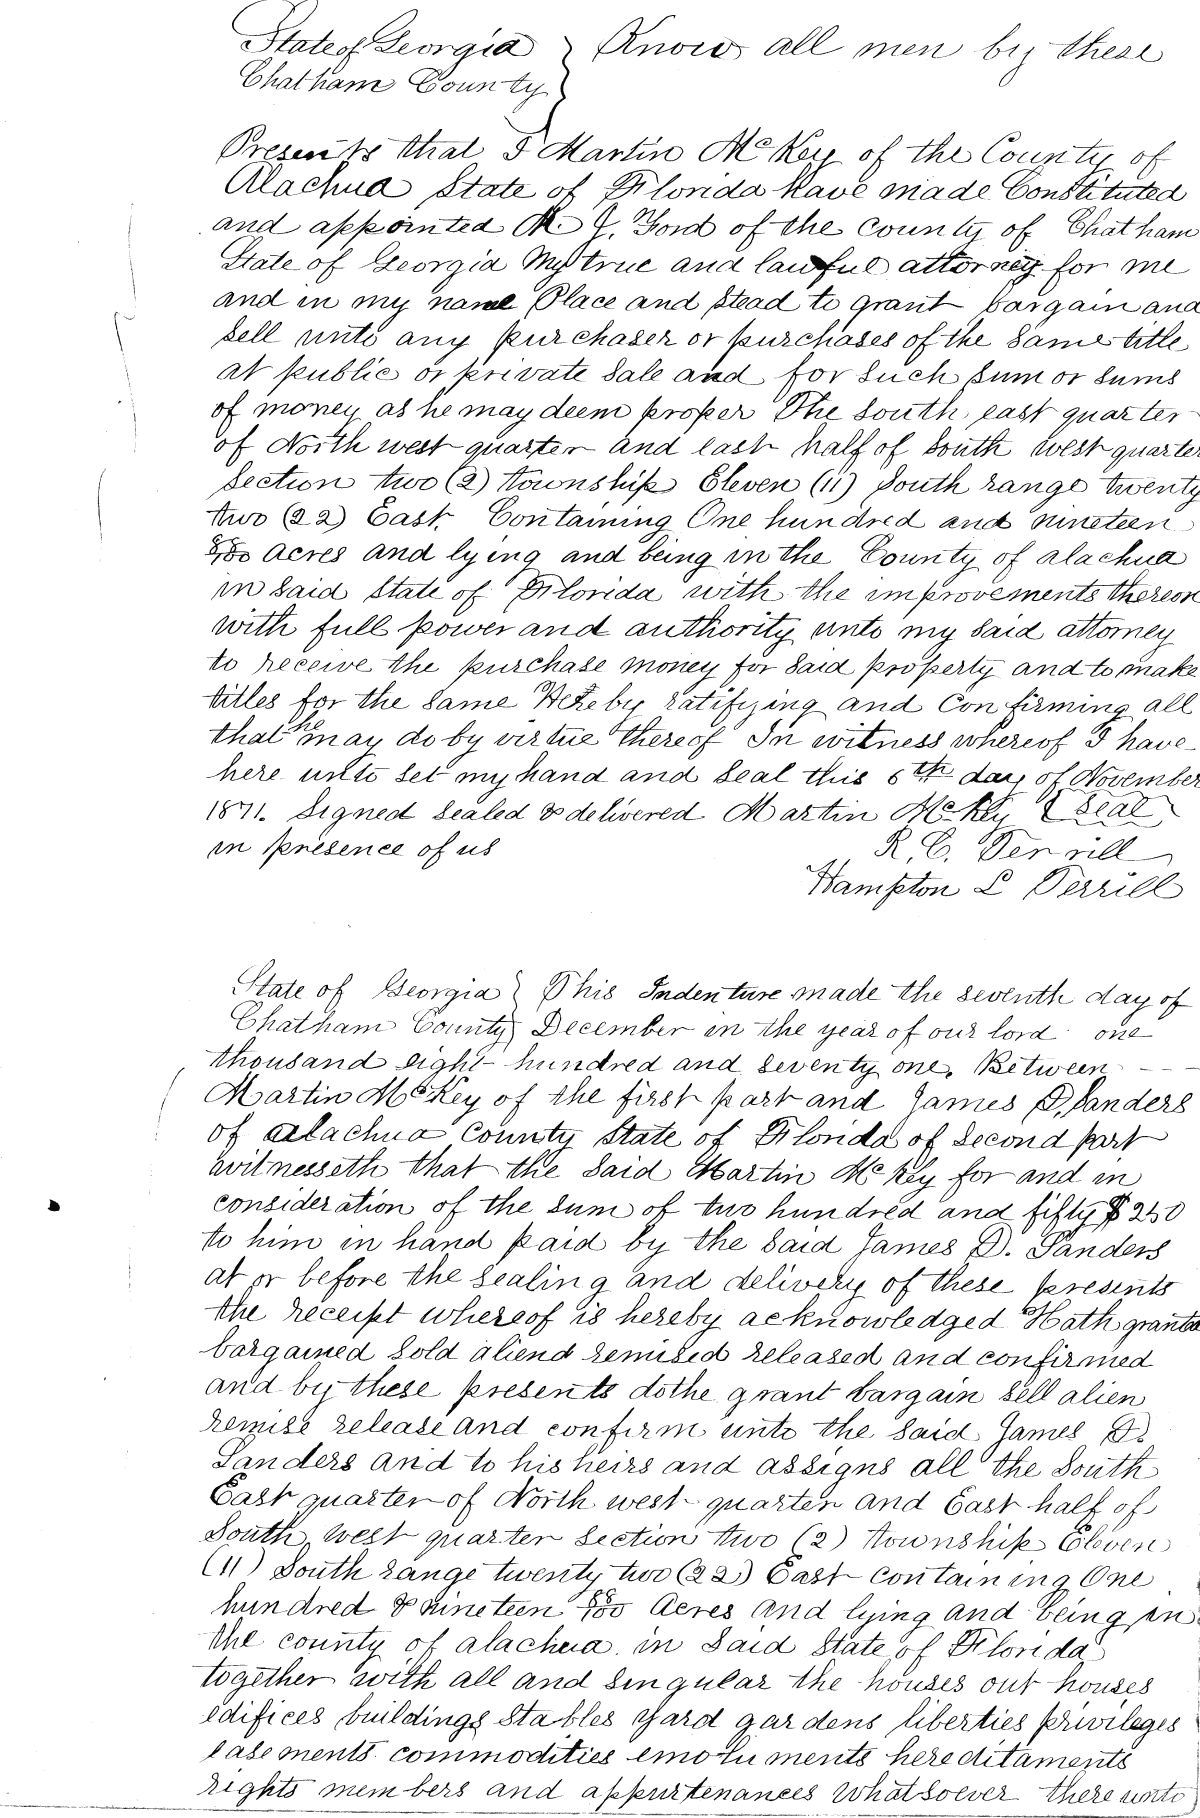 State of Georgia } Know all men by these
Chatham County }
Presents that I Martin McKey of the County of
Alachua State of Florida have made Constituted
and appointed M. J. Ford of the county of Chatham
State of Georgia My true and lawful attorney for me
and in my name Place and stead to grant bargain and
sell unto any purchaser or purchases of the same title
at public or private sale and for such sum or sums
of money as he may deem proper The south east quarter
of North west quarter and east half of south west quarter
section two (2) township Eleven (11) South range twenty
two (22) East. Containing One hundred and nineteen
88/100 acres and lying and being in the County of alachua
in said State of Florida with the improvements thereon
with full power and authority unto my said attorney
to receive the purchase money for said property and to make
titles for the same Hereby ratifying and confirming all
that he may do by virtue thereof In witness whereof I have
here unto set my hand and seal this 6th day of November
1871. Signed sealed & delivered Martin McKey { Seal }
in presence of us R. C. Terrill
Hampton L Terrill
State of Georgia } This Indenture made the seventh day of
Chatham County } December in the year of our lord one
thousand eight hundred and seventy one. Between
Martin McKey of the first part and James D. Sanders
of alachua county State of Florida of second part
witnesseth that the said Martin McKey for and in
consideration of the sum of two hundred and fifty $250
to him in hand paid by the said James D. Sanders
at or before the sealing and delivery of these presents
the receipt whereof is hereby acknowledged Hath granted
bargained sold aliend remised released and confirmed
and by these presents dothe grant bargain sell alien
remise release and confirm unto the said James D.
Sanders and to his heirs and assigns all the South
East quarter of North west quarter and East half of
South west quarter section two (2) township Eleven
(11) South range twenty two (22) East containing One
hundred & nineteen 88/100 Acres and lying and being in
the county of alachua in said State of Florida
together with all and singular the houses out houses
edifices buildings stables yard gardens liberties privileges
easements commodities emoluments hereditaments
rights members and appurtenances whatsoever there unto